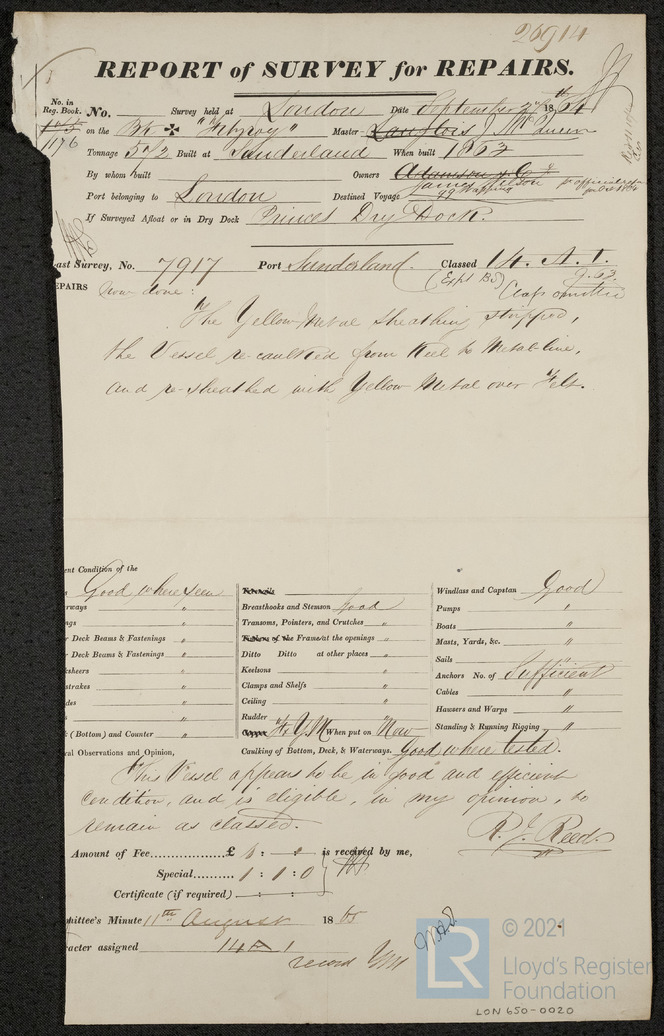 20914
REPORT of SURVEY for REPAIRS.
No. in Reg. Book. No. Survey held at London Date September 18
1176 on the Bk "Fitzroy" Master
Tonnage 572 Built at Sunderland When built 1863
By whom built Owners Adamson & Co
James Wilson
99 Wapping
Port belonging to London Destined Voyage
If Surveyed Afloat or in Dry Dock Princes Dry Dock.
ast Survey, No. 7917 Port Sunderland. Classed 14. A. 1.
9.63
EPAIRS now done : Class omitted
The Yellow Metal sheathing stripped,
the Vessel re-caulked from Keel to Metal-line,
and re-sheathed with Yellow Metal over Felt.
ent Condition of the
Good where seen
rways "
ngs "
r Deck Beams & Fastenings "
r Deck Beams & Fastenings "
ksheers "
strakes "
des "
es "
( Bottom) and Counter "
Treenails
Breasthooks and Stemson good
Transoms, Pointers, and Crutches "
Timbers of the Frame/at the openings "
Ditto Ditto at other places "
Keelsons "
Clamps and Shelfs "
Ceiling "
Rudder "
Copper Y.M When put on Now
Caulking of Bottom, Deck, & Waterways. Good where tested.
Windlass and Capstan Good
Pumps "
Boats "
Masts, Yards, &c. "
Sails "
Anchors No. of Sufficient
Cables "
Hawsers and Warps "
Standing & Running Rigging "
al Observations and Opinion,
This Vessel appears to be in good and efficient
condition, and is eligible, in my opinion, to
remain as classed.
R. J. Reed.
Amount of Fee £ is received by me,
Special 1 : 1 : 0
Certificate (if required)
mittee's Minute 11th August 1865
racter assigned 14 A 1
record YM
© 2021
LR
Lloyd's Register
Foundation
LON 650-0020